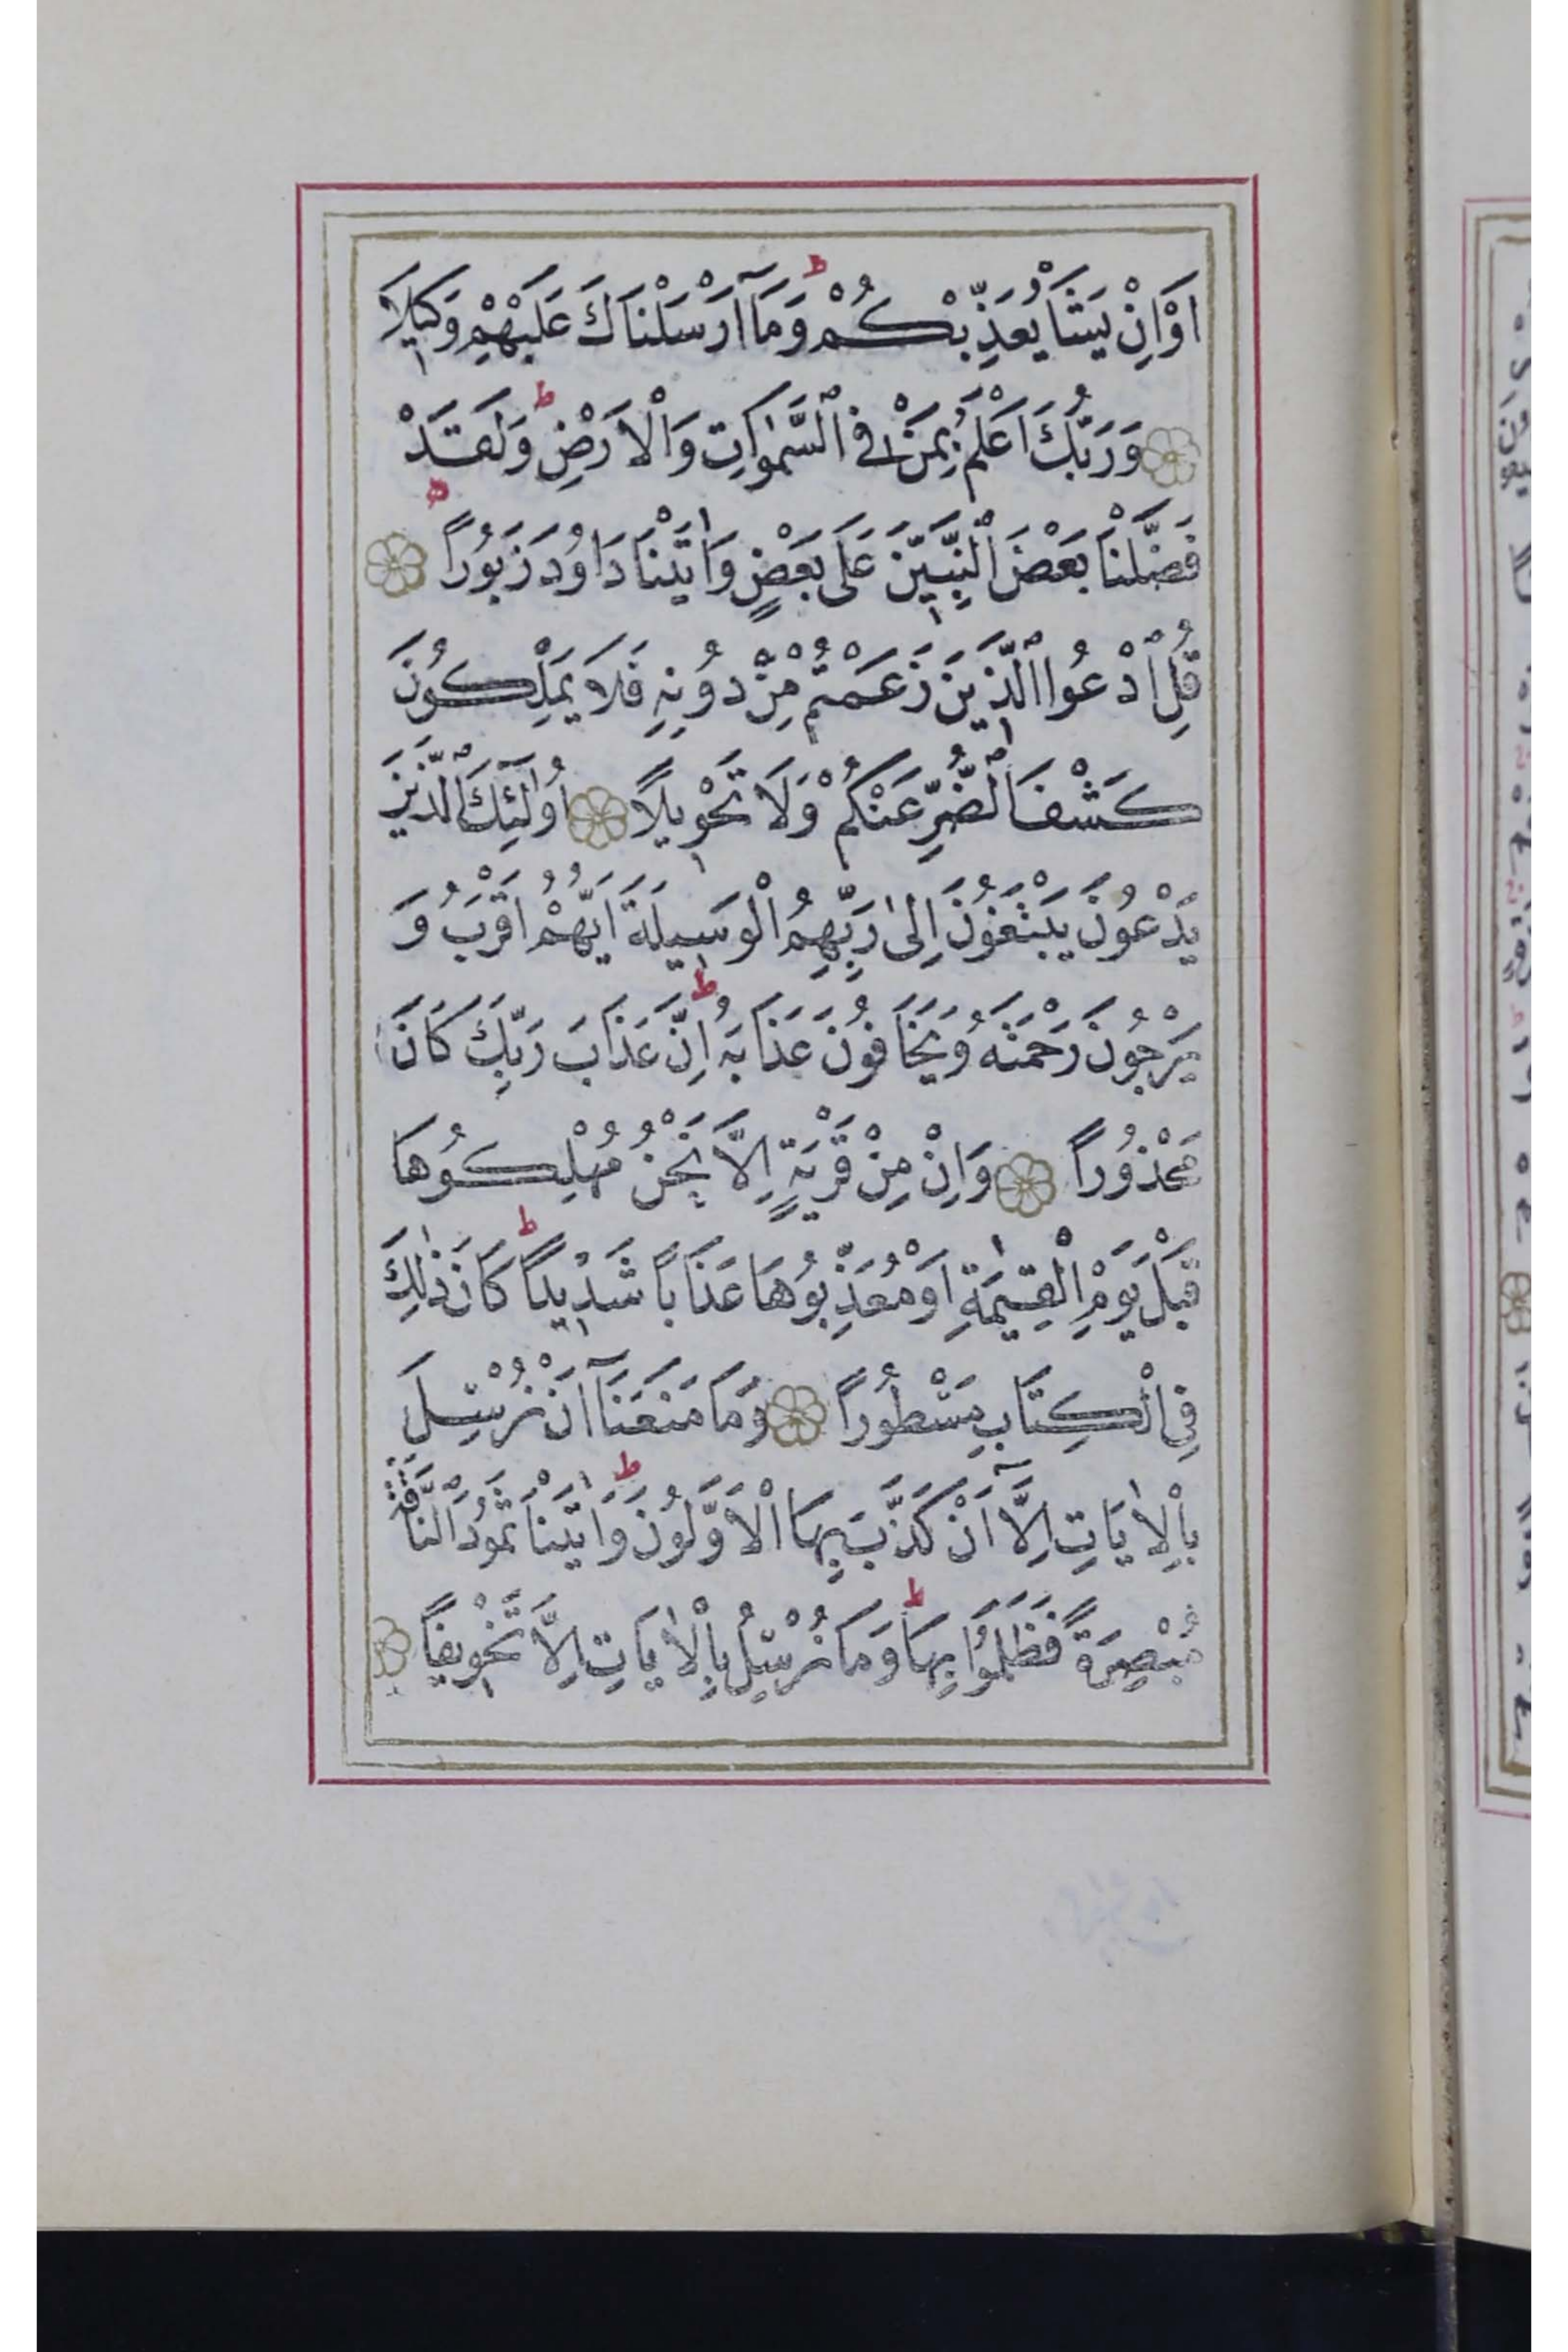 اَوْ اِنْ يَشَأْ يُعَذِّبْكُمْ ۜ وَمَآ اَرْسَلْنَاكَ عَلَيْهِمْ وَكِيلًا
وَرَبُّكَ اَعْلَمُ بِمَنْ فِي ٱلسَّمٰوَاتِ وَالْاَرْضِ ط وَلَقَدْ
فَضَّلْنَا بَعْضَ ٱلنَّبِيّنَ عَلٰى بَعْضٍ وَاٰتَيْنَا دَاوُدَ زَبُورًا ط
قُلِ ٱدْعُوا ٱلَّذِينَ زَعَمْتُمْ مِنْ دُونِهِ فَلَا يَمْلِكُونَ
كَشْفَ ٱلضُّرِّ عَنْكُمْ وَلَا تَحْوِيلًا اُولٰٓئِكَ ٱلَّذِينَ
يَدْعُونَ يَبْتَغُونَ اِلىٰ رَبِّهِمُ الْوَسِيلَةَ اَيُّهُمْ اَقْرَبُ وَ
يَرْجُونَ رَحْمَتَهُ وَيَخَافُونَ عَذَابَهُ ط اِنَّ عَذَابَ رَبِّكَ كَانَ
مَحْذُورًا وَاِنْ مِنْ قَرْيَةٍ اِلَّا نَحْنُ مُهْلِكُوهَا
قَبْلَ يَوْمِ الْقِيٰمَةِ اَوْ مُعَذِّبُوهَا عَذَابًا شَدِيدًا ط كَانَ ذٰلِكَ
فِي الْكِتَابِ مَسْطُورًا وَمَا مَنَعَنَآ اَنْ نُرْسِلَ
بِالْاٰيَاتِ اِلَّآ اَنْ كَذَّبَ بِهَا الْاَوَّلُونَ ط وَاٰتَيْنَا ثَمُودَ ٱلنَّاقَةَ
مُبْصِرَةً فَظَلَمُوا بِهَا ط وَمَا نُرْسِلُ بِالْاٰيَاتِ اِلَّا تَخْوِيفًا